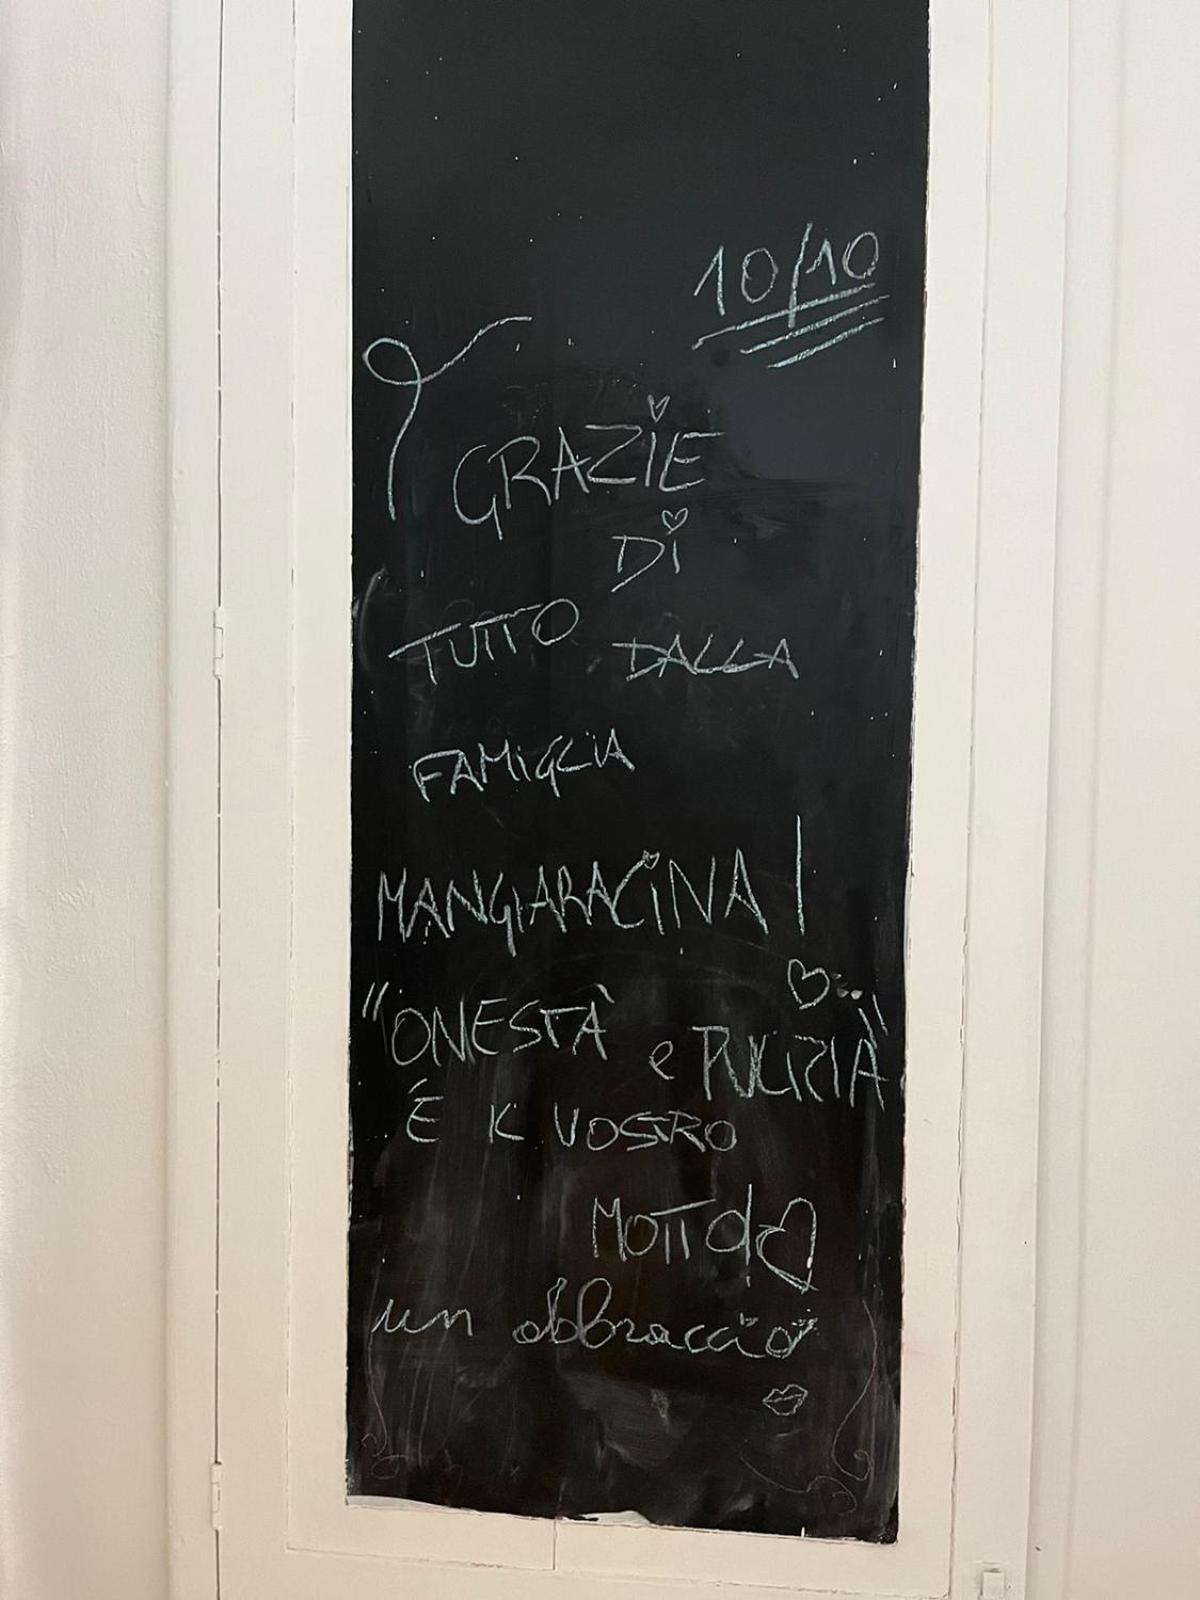 10/10
GRAZIE
DI
TUTTO DALLA
FAMIGLIA
MANGIARACINA!
"ONESTÀ e PULIZIA"
È IL VOSTRO
MOTTO
un abbraccio